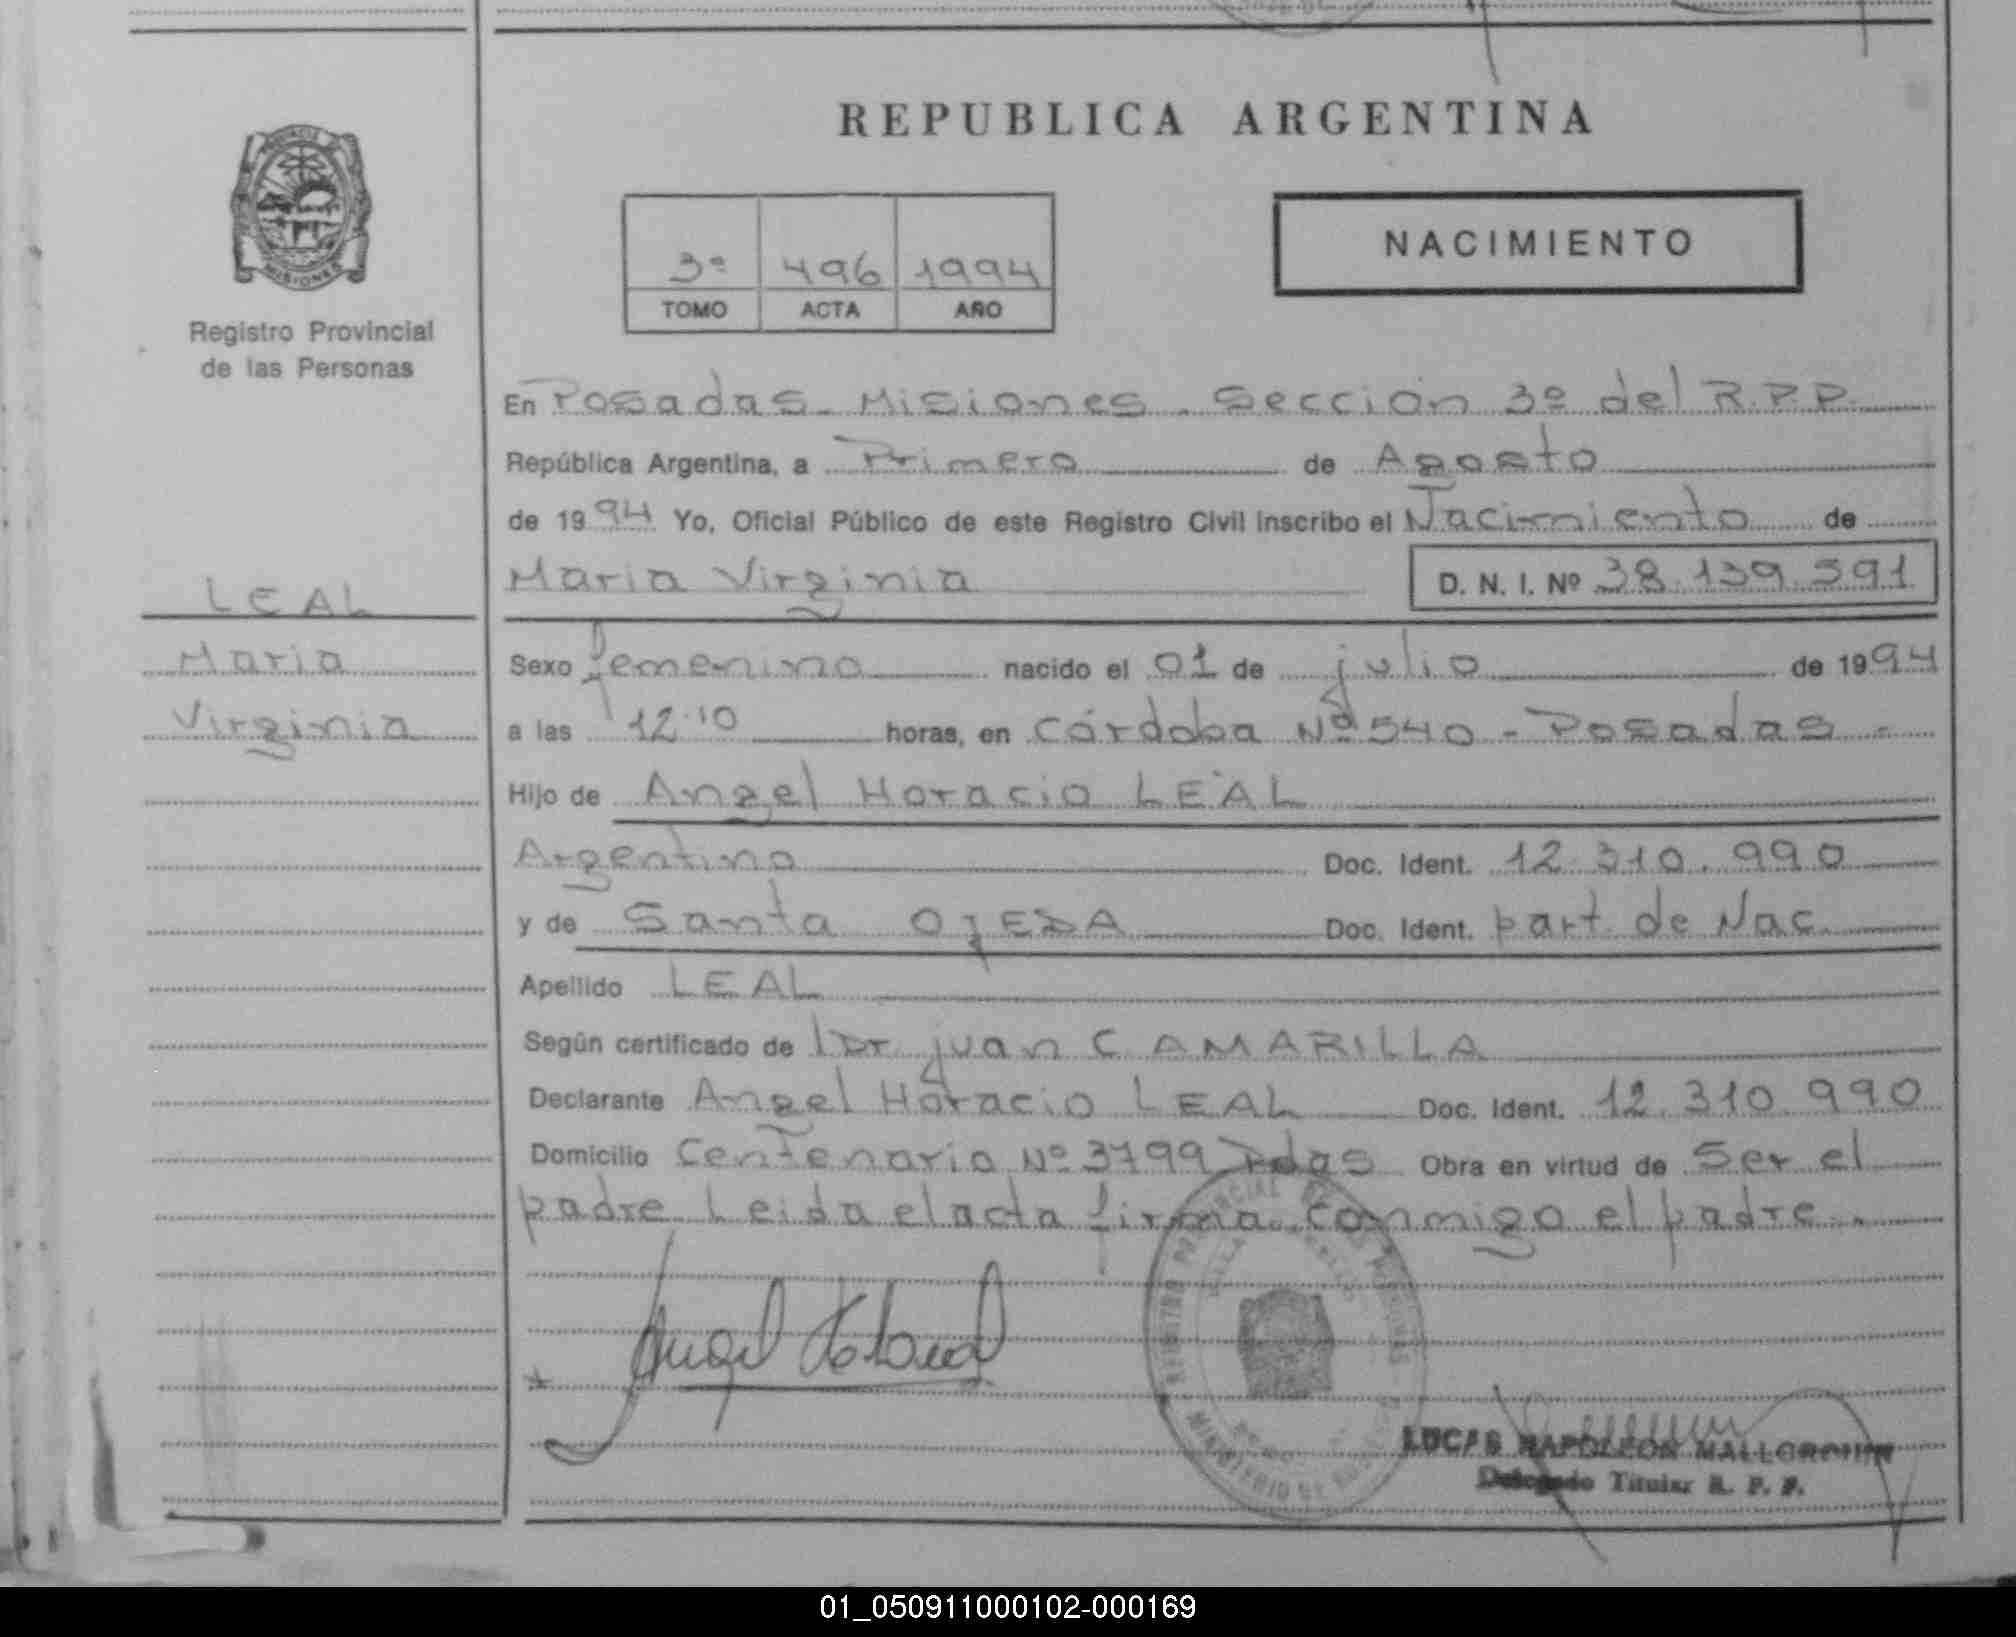 REPUBLICA ARGENTINA
NACIMIENTO
3º 496 1994
TOMO ACTA AÑO
MISIONES
Registro Provincial
de las Personas
LEAL
Maria
Virginia
En Posadas - Misiones - Sección 3º del R.P.P.
República Argentina, a Primero de Agosto
de 1994 Yo, Oficial Público de este Registro Civil inscribo el Nacimiento de
Maria Virginia D. N. I. Nº 38.139.391
Sexo femenino nacido el 01 de julio de 1994
a las 12:10 horas, en Córdoba Nº 540 - Posadas -
Hijo de Angel Horacio LEAL
Argentino Doc. Ident. 12.310.990
y de Santa OJEDA Doc. Ident. part. de Nac.
Apellido LEAL
Según certificado de Dr. Juan C AMARILLA
Declarante Angel Horacio LEAL Doc. Ident. 12.310.990
Domicilio Centenario Nº 3799 Pdas Obra en virtud de Ser el
padre Leida el acta firma conmigo el padre.
LUCAS NAPOLEON
Delegado Titular R. P. P.
01_050911000102-000169